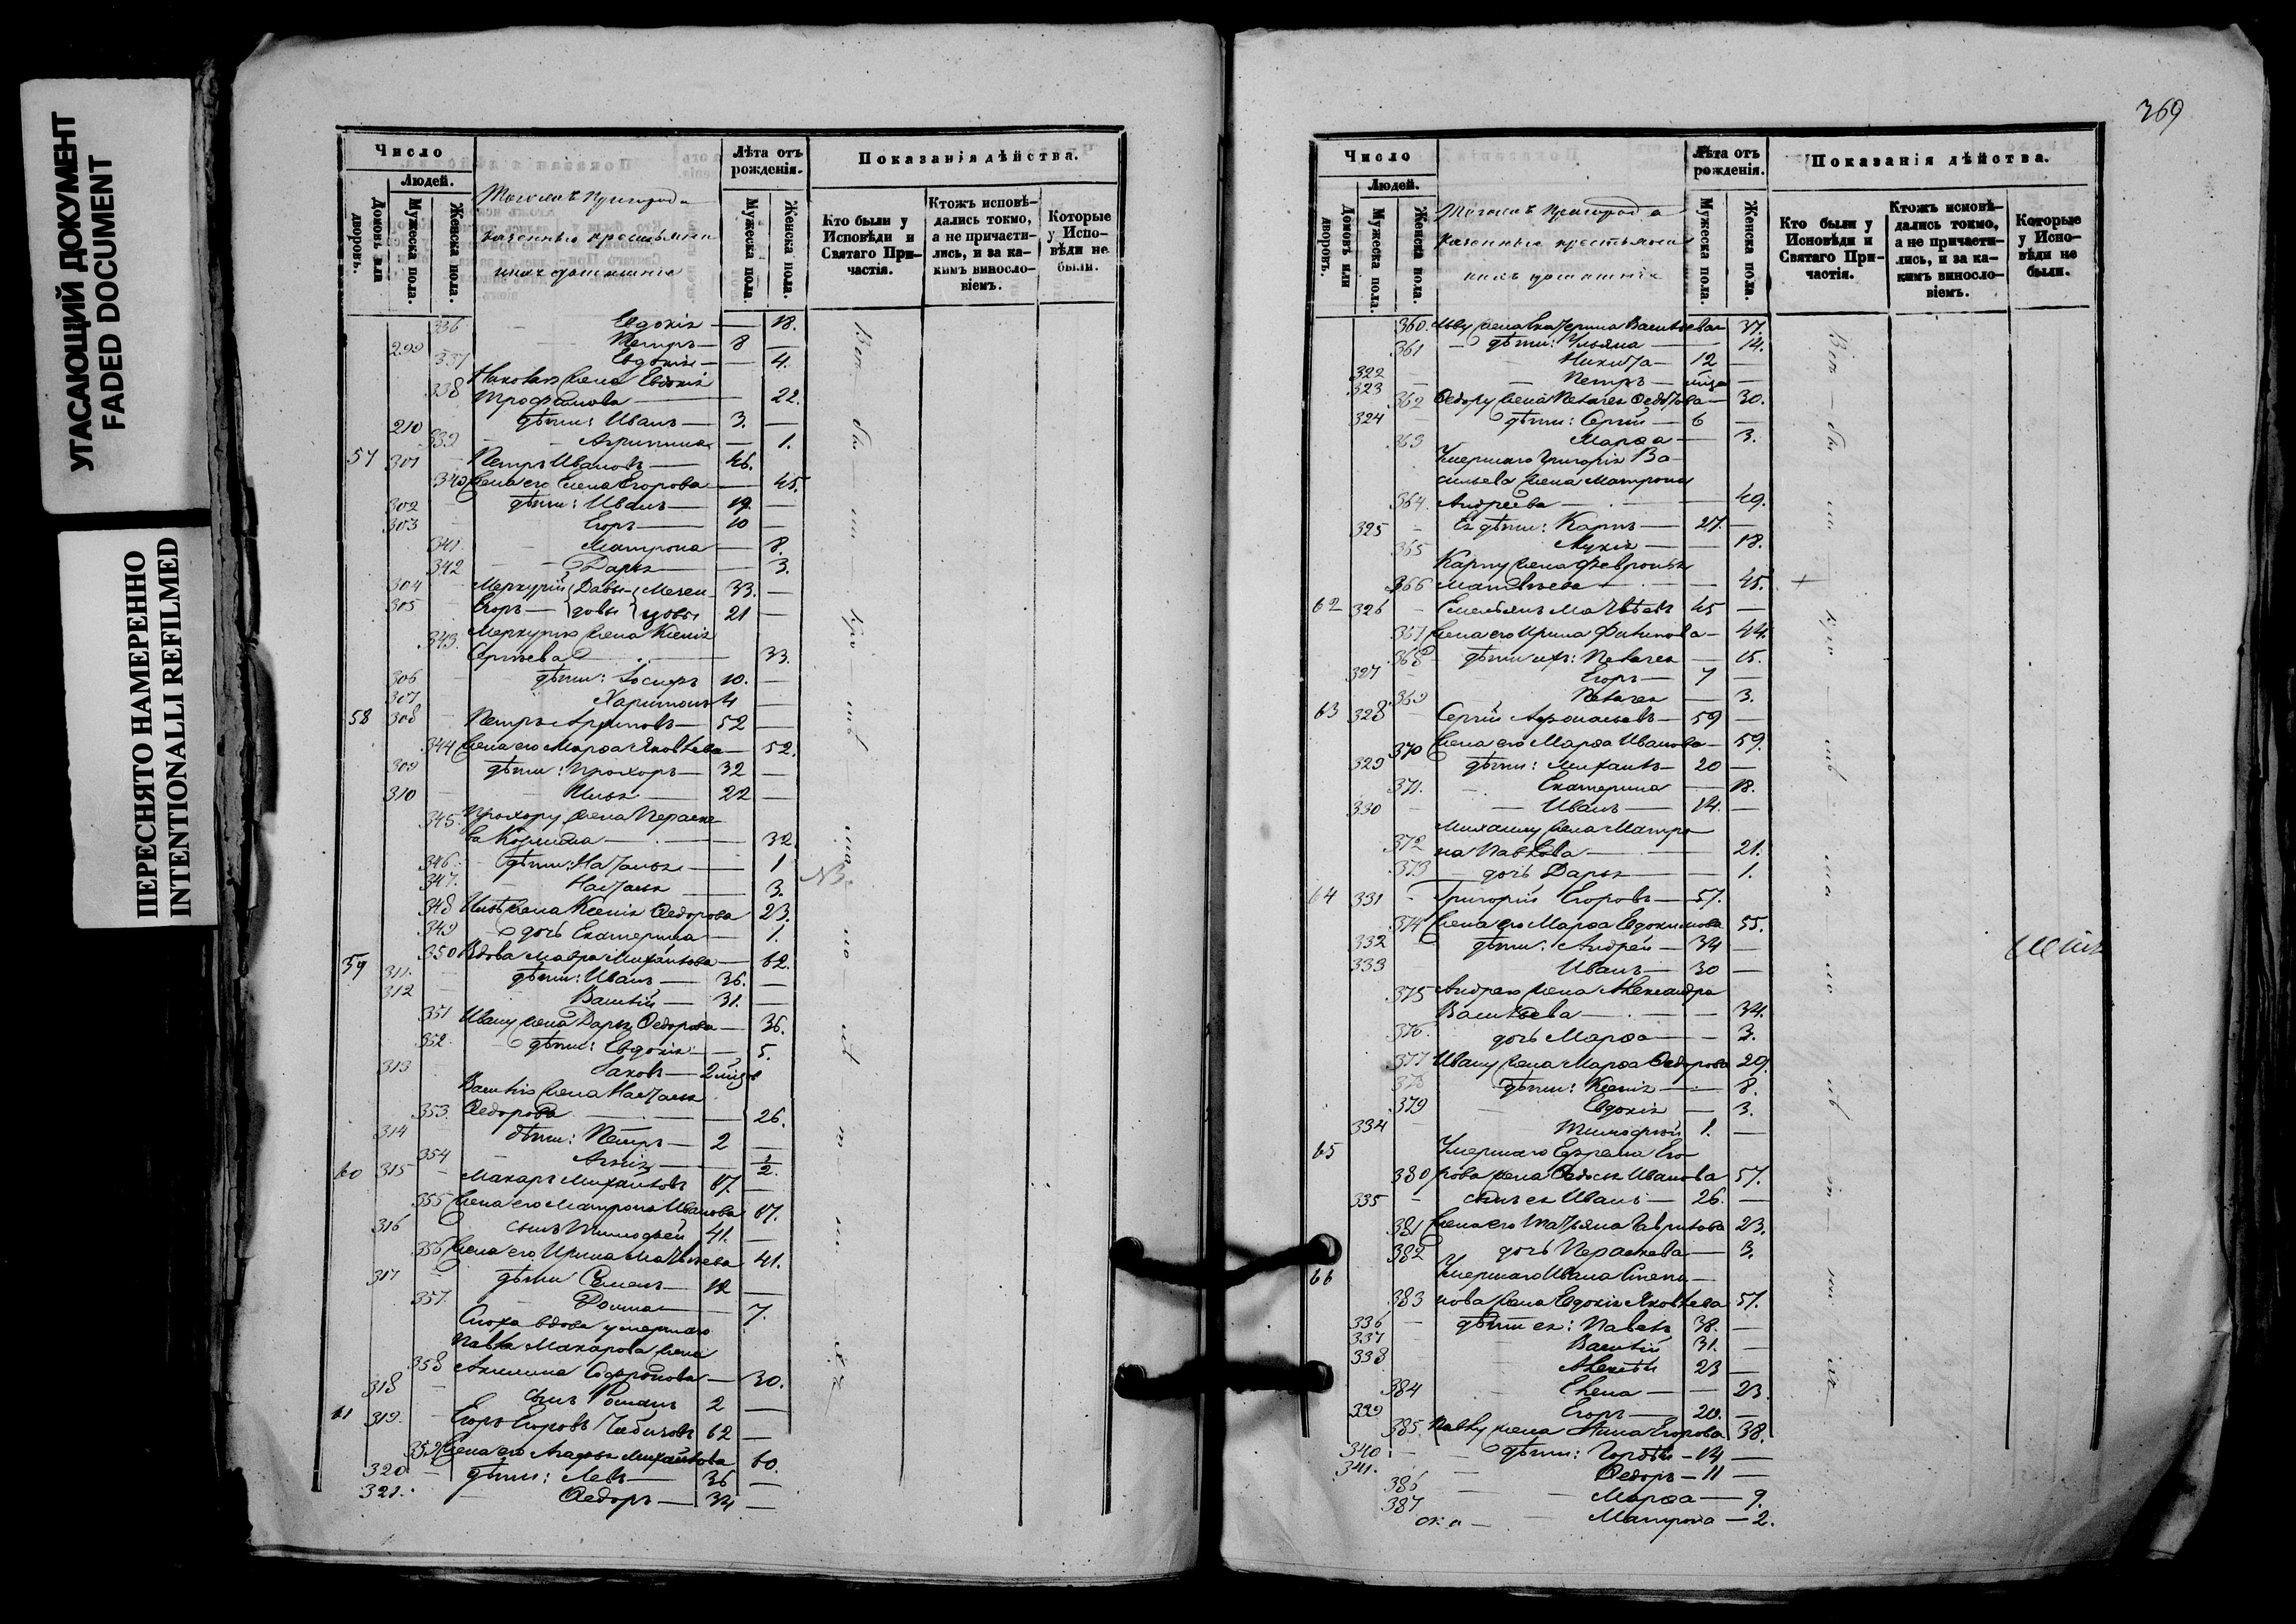 УГАСАЮЩИЙ ДОКУМЕНТ
FADED DOCUMENT
ПЕРЕСНЯТО НАМЕРЕННО
INTENTIONALLI REFILMED
Число
Людей.
Домовъ или дворовъ.
Мужеска пола.
Женска пола.
Лѣта отъ рожденія.
Мужеска пола.
Женска пола.
Показанія дѣйства.
Кто были у Исповѣди и Святаго Причастія.
Ктожъ исповѣдались токмо, а не причастились, и за какимъ винословіемъ.
Которые у Исповѣди не были.
336 Евдокія — 18.
299 Петръ — 8 —
337 Евдокія — 4.
338 Яковлю жена Евдокія
Трофимова — 22.
дѣти: Иванъ — 3. —
339 Агрипина — 1.
57 301 Петръ Ивановъ — 46.
340 Жена его Елена Егорова — 45.
302 дѣти: Иванъ — 19 —
303 Егоръ — 10 —
341 Матрона — 8.
342 Дарья — 3.
304 Меркурій Давы- 33. —
305 Егоръ — довы 21 —
343. Меркурію жена Ксенія
Сергѣева — 33.
306 дѣти: Іосифъ 10. —
307 Харитонъ 4 —
58 308 Петръ 52 —
344 Жена его Марѳа Яковлева — 52.
309 дѣти: Прохоръ — 32 —
310 Илья — 22 —
345. Прохору жена Параске
ва Козмина — 32
346. дѣти: Наталья — 1
347. Настасья — 3.
348 Ильѣ жена Ксенія Ѳедорова 23.
349 дочь Екатерина — 1.
59 350 Вдова Мавра Михайлова — 62.
311. дѣти: Иванъ — 36. —
312 Василій — 31. —
351 Ивану жена Дарья Ѳедорова — 36.
352. дѣти: Евдокія — 5.
313 Іаковъ —
Василію жена Настасья
353. Ѳедорова — 26.
314 дѣти: Петръ — 2 —
354
60 315 Макаръ Михайловъ 67. —
355 Жена его Матрона Иванова 67.
316 сынъ Тимофей 41. —
356 Жена его Ирина Матвѣева 41.
317 дѣти Семенъ — 12 —
357. Домна — 7.
Сноха вдова умершаго
Павла Макарова жена
358 Акилина Софронова — 30.
318 сынъ Романъ 2 —
61 319. Егоръ Егоровъ 62 —
359 Жена его Агафья Михайлова 60.
320 дѣти: Левъ — 36 —
321. Ѳедоръ — 34 —
369
Число
Людей.
Домовъ или дворовъ.
Мужеска пола.
Женска пола.
Лѣта отъ рожденія.
Мужеска пола.
Женска пола.
Показанія дѣйства.
Кто были у Исповѣди и Святаго Причастія.
Ктожъ исповѣдались токмо, а не причастились, и за какимъ винословіемъ.
Которые у Исповѣди не были.
360. Льву жена Екатерина Васильева 37.
361 дѣти: Ульяна — 14.
322 Никита — 12 —
323 Петръ —
362 Ѳедору жена Пелагея Ѳедотова — 30.
324 дѣти: Сергій — 6 —
363 Марѳа — 3.
Умершаго Григорія Ва-
сильева жена Матрона
364. Андреева — 49.
325 Ея дѣти: Карпъ — 27. —
365 Лукія — 18.
Карпу жена Февронья
366 Матвѣева — 45.
62 326 Емельянъ Матвѣевъ 45 —
367 Жена его Ирина Филипова — 44.
368 дѣти ихъ: Пелагея — 15.
327 Егоръ — 7 —
369 Пелагея — 3.
63 328 Сергій Афонасьевъ — 59 —
370 Жена его Марѳа Иванова — 59.
329 дѣти: Михаилъ — 20 —
371. Екатерина — 18.
330 Иванъ — 14. —
Михаилу жена Матро
372 на Павлова — 21.
373 дочь Дарья — 1.
64 331 Григорій Егоровъ — 57.
374 Жена его Марѳа Евдокимова 55.
332 дѣти: Андрей — 34 —
333 Иванъ — 30 —
375 Андрею жена Александра
Васильева — 34.
376. дочь Марѳа — 3.
377 Ивану жена Марѳа Ѳедорова 29.
378 дѣти: Ксенія — 8.
379 Евдокія — 3.
334 Тимофей 1. —
65 Умершаго Ефрема Его-
380 рова жена Ѳедосья Иванова 57.
335 сынъ ея Иванъ — 26. —
381 Жена его Татьяна Гаврилова 23.
382 дочь Параскева — 3.
66 Умершаго Ивана Степа-
383 нова жена Евдокія Яковлева 57.
336 дѣти ея: Павелъ 38. —
337 Василій 31. —
338 Алексѣй 23 —
384 Елена — 23.
339 Егоръ — 20. —
385. Павлу жена Анна Егорова 38.
340 дѣти: Гордѣй — 14 —
341. Ѳедоръ — 11 —
386 Марѳа — 9.
387 Матрона — 2.